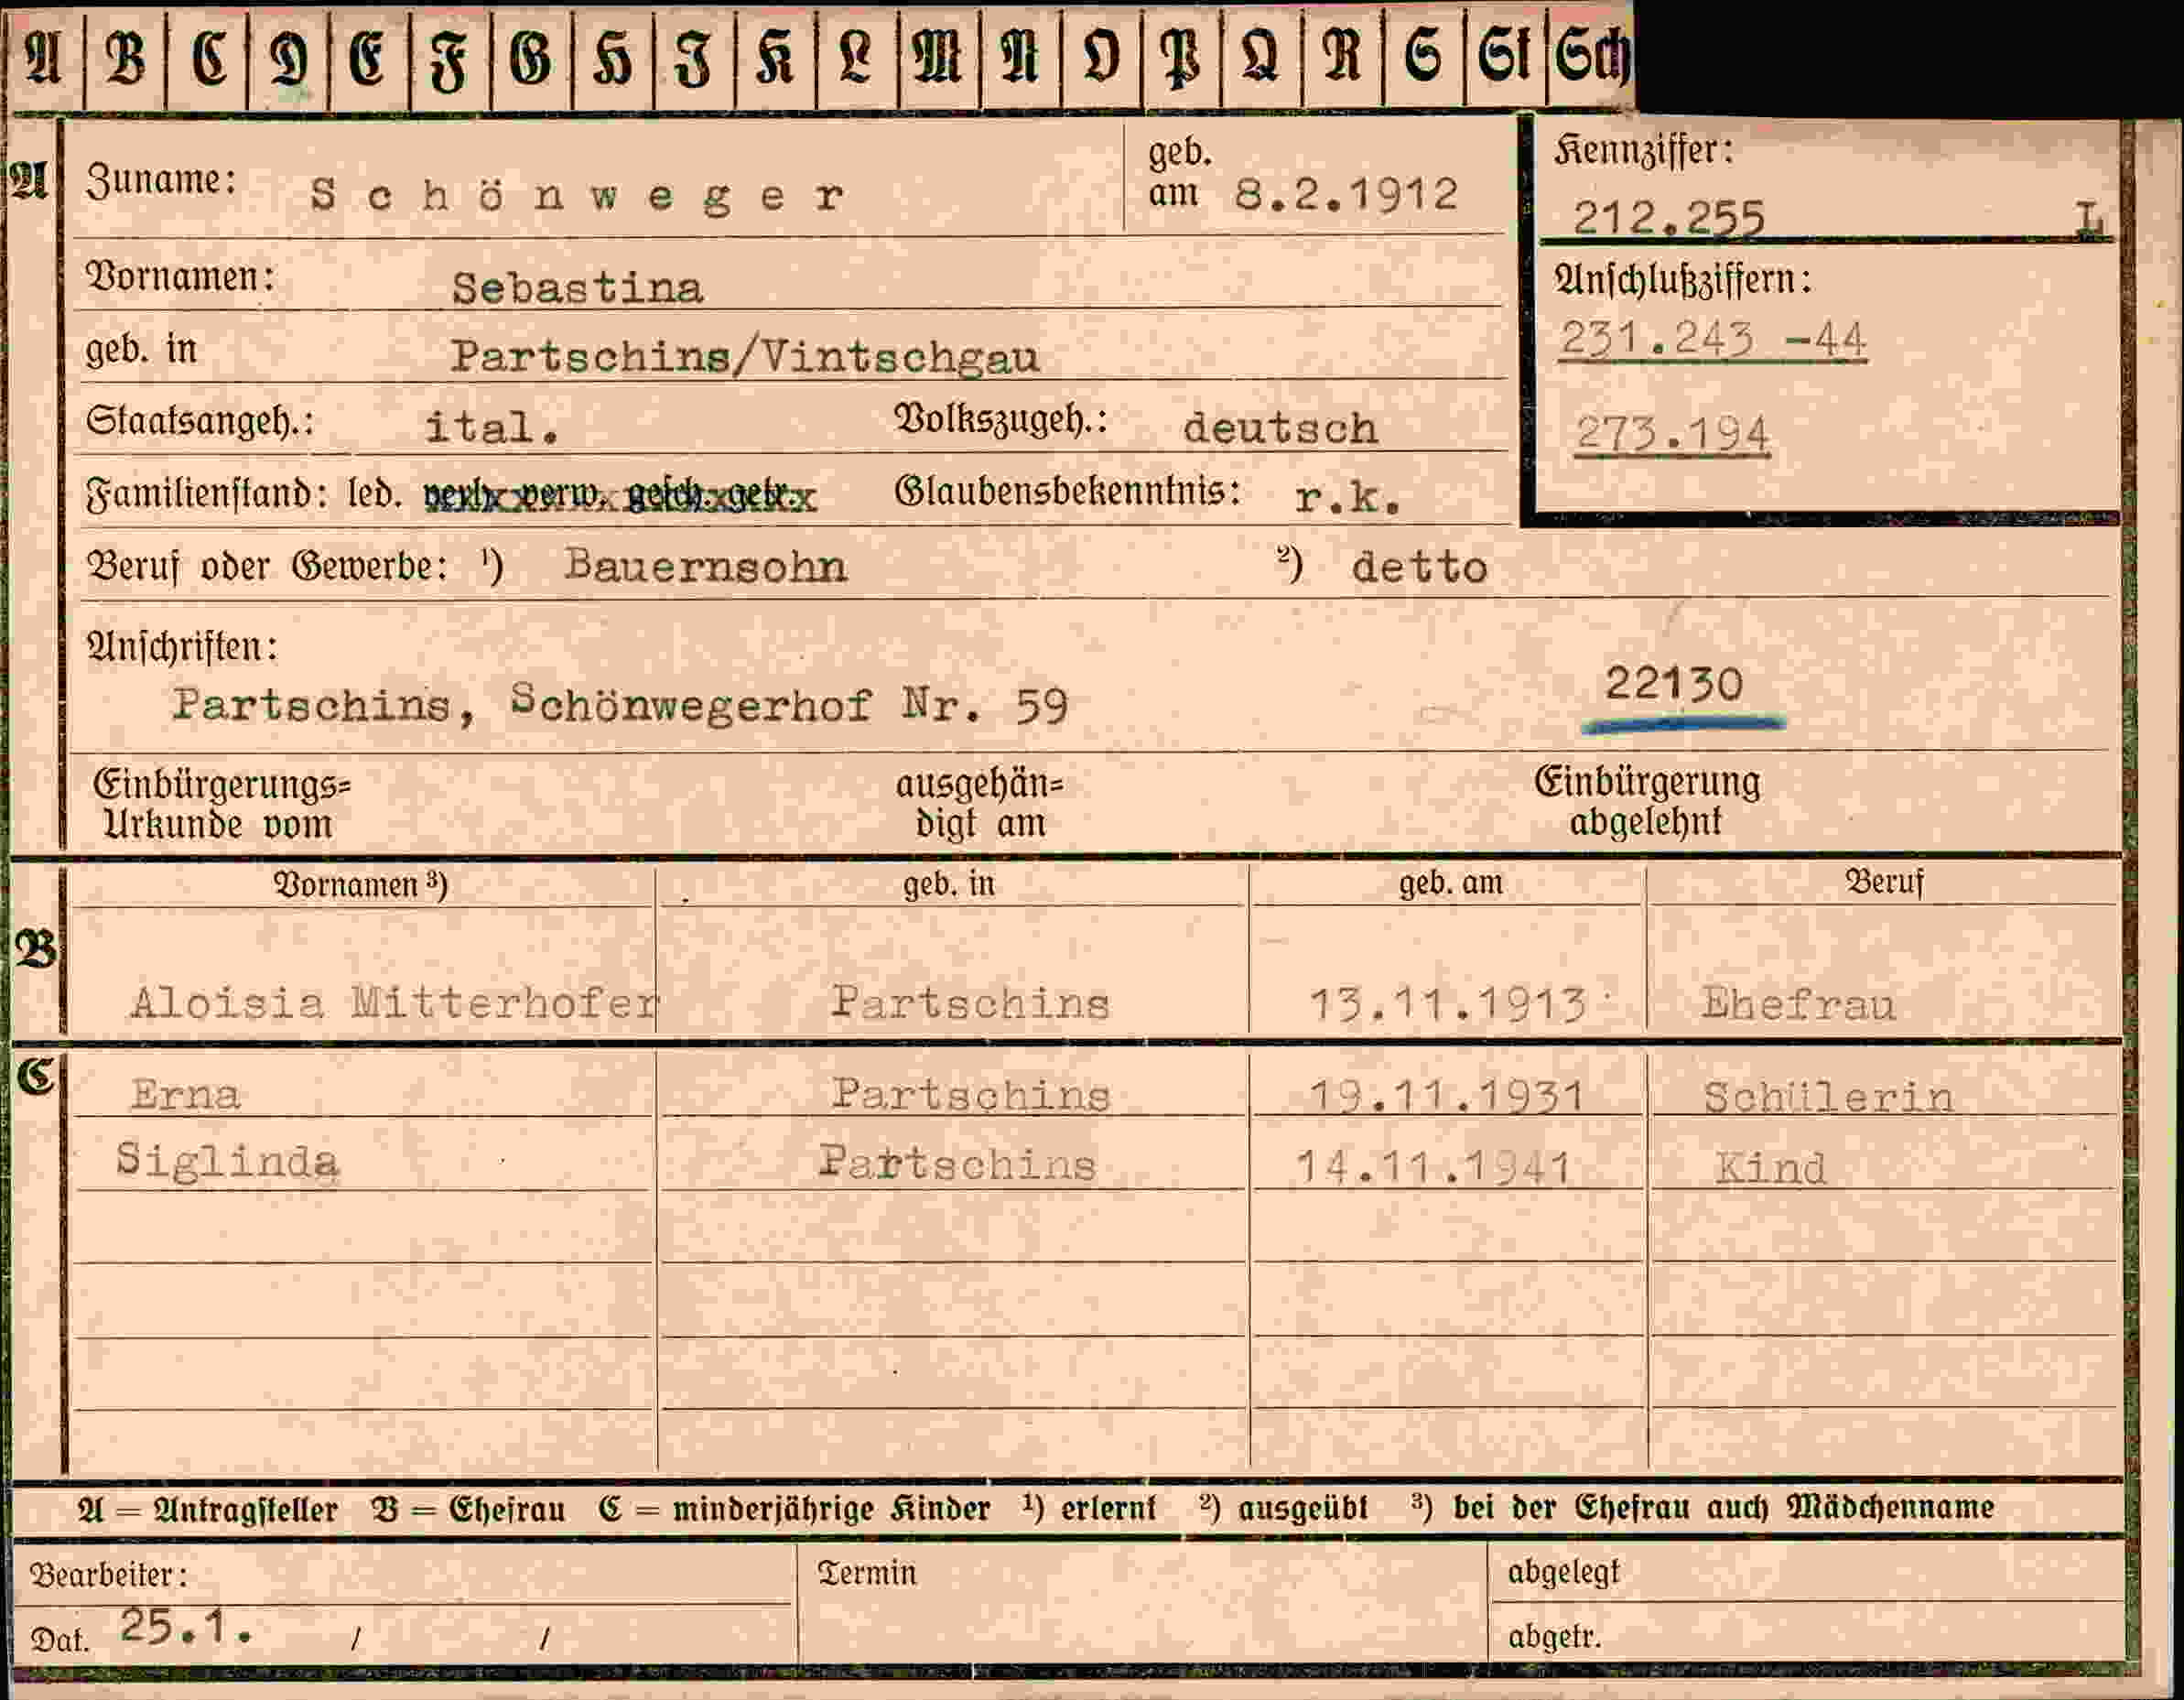 A B C D E F G H I K L M N O P Q R S St Sch
A Zuname: Schönweger geb. am 8.2.1912
Kennziffer: 212.255 L
Vornamen: Sebastina
Anschlußziffern:
231.243 -44
273.194
geb. in Partschins/Vintschgau
Staatsangeh.: ital. Volkszugeh.: deutsch
Familienstand: led. verh. verw. gesch. getr. Glaubensbekenntnis: r.k.
Beruf oder Gewerbe: ¹) Bauernsohn ²) detto
Anschriften:
Partschins, Schönwegerhof Nr. 59 22130
Einbürgerungs= Urkunde vom ausgehän= digt am Einbürgerung abgelehnt
Vornamen ³) geb. in geb. am Beruf
B Aloisia Mitterhofer Partschins 13.11.1913 Ehefrau
C Erna Partschins 19.11.1931 Schülerin
Siglinda Partschins 14.11.1941 Kind
A = Antragsteller B = Ehefrau C = minderjährige Kinder ¹) erlernt ²) ausgeübt ³) bei der Ehefrau auch Mädchenname
Bearbeiter: Termin abgelegt
Dat. 25.1. / / abgetr.